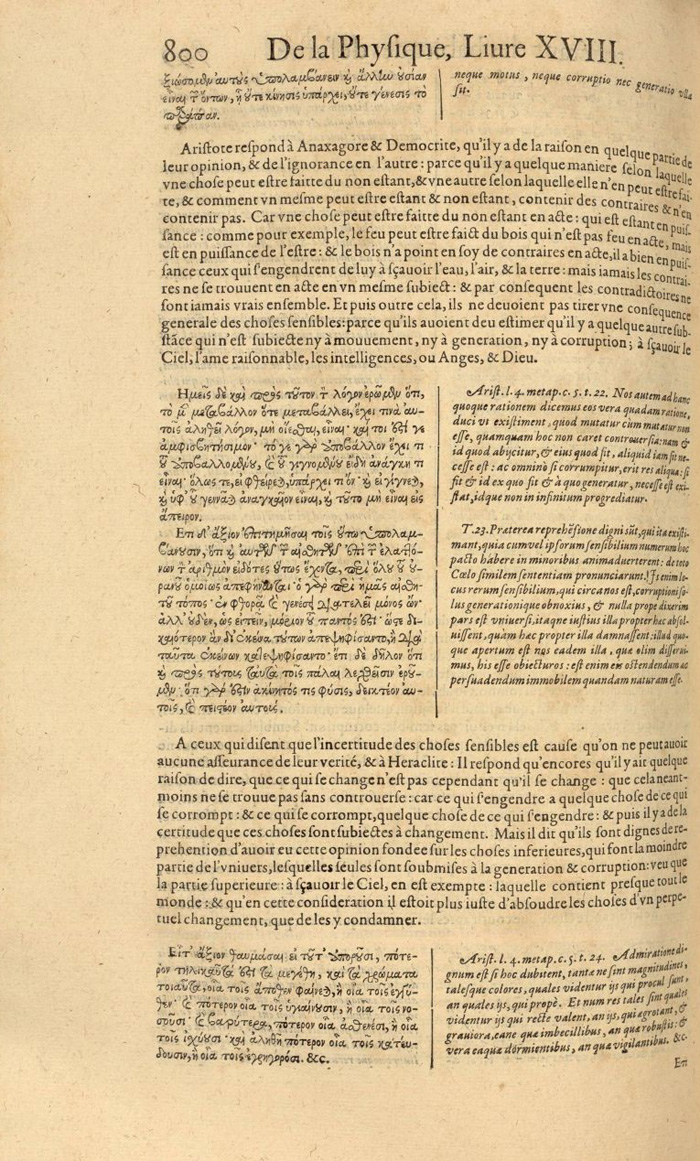 800 De la Phyſique, Liure XVIII.
ξιώσομϸυ αυτȣ̀ς ὑπολαμβάνειν ϰ̀ ἄλλίω ȣσίαν
εἶναι τ̃ ὄντων, ᾗ ȣ̓́τε κίνησις ὑπάρχει, ȣ̓́τε γένεσις τὸ
neque motus, neque corruptio nec generatio vlla
ſit.
Ariſtote reſpond à Anaxagore & Democrite, qu'il y a de la raiſon en quelque partie de
leur opinion, & de l'ignorance en l'autre: parce qu'il y a quelque maniere ſelon laquelle
vne choſe peut eſtre faitte du non eſtant, & vne autre ſelon laquelle elle n'en peut eſtre fai-
te, & comment vn meſme peut eſtre eſtant & non eſtant, contenir des contraires & n'en
contenir pas. Car vne choſe peut eſtre faitte du non eſtant en acte: qui eſt eſtant en puiſ-
ſance: comme pour exemple, le feu peut eſtre faict du bois qui n'eſt pas feu en acte, mais
eſt en puiſſance de l'eſtre: & le bois n'a point en ſoy de contraires en acte, il a bien en puiſ-
ſance ceux qui ſ'engendrent de luy à ſçauoir l'eau, l'air, & la terre: mais iamais les contrai-
res ne ſe trouuent en acte en vn meſme ſubiect: & par conſequent les contradictoires ne
ſont iamais vrais enſemble. Et puis outre cela, ils ne deuoient pas tirer vne conſequence
generale des choſes ſenſibles: parce qu'ils auoient deu eſtimer qu'il y a quelque autre ſub-
ſtãce qui n'eſt ſubiecte ny à mouuement, ny à generation, ny à corruption; à ſçauoir le
Ciel, l'ame raiſonnable, les intelligences, ou Anges, & Dieu.
Ἡμεῖς δὲ καὶ πρὸς τȣ͂τον τ̃ λόγον ἐρȣ͂μϸυ ὅτι,
τὸ μ̃ μεταβάλλον ὅτε μεταβάλλει, ἔχει τινὰ αυ-
τοῖς ἀληθῆ λόγον, μὴ οἴεσθαι, εἶναι· καί τοι ὅζι γε
ἀμφισβητήσιμον· τό γε γὸ ἀποβάλλον ἔχει τι
ȣ̃ ἀποβαλλομϸύȣ, ϗ ȣ̃ γιγνομϸύȣ ἤδη ἀνάγκη τι
εἶναι· ὅλως τε, εἰ φθείρεϗ, ὑπάρχει τι ὄν· ϰ̀ εἰ γίγνεϗ,
ϰ̀ ὑφ᾽ ȣ̃ γεννᾶϗ ἀναγκαῖον εἶναι, ϰ̀ τȣ͂το μὴ εἶναι εἰς
ἄπειρον.
Ariſt. l. 4. metap. c. 5. t. 22. Nos autem ad hanc
quoque rationem dicemus eos vera quadam ratione,
duci vt exiſtiment, quod mutatur cum mutatur non
eſſe, quamquam hoc non caret controuerſia: nam &
id quod abijcitur, & eius quod fit, aliquid iam ſit ne-
ceſſe eſt: ac omnino ſi corrumpitur, erit res aliqua: ſi
fit & id ex quo fit & à quo generatur, neceſſe eſt exi-
ſtat, idque non in infinitum progrediatur.
Ἔτι δ᾽ ἄξιον ἐπιτιμῆσαι τοῖς ȣ̓́τω ὑπολαμ-
βάνȣσιν, ὅτι ϰ̀ αυτῶν τ̃ αἰσθητῶν ἐπὶ τ̃ ἐλαττό-
νων τ̃ ἀριθμὸν εἰδότες ȣ̓́τως ἔχοντα, περὶ ὅλȣ ȣ̃ ȣ-
ρανȣ̃ ὁμοίως ἀπεφήναντο· ὁ γὸ περὶ ἡμᾶς αἰσθη-
τȣ̃ τόπος· ἐν φθορᾷ ϗ γενέσει διατελεῖ μόνος ὤν·
ἀλλ᾽ ȣ̓δὲν, ὡς εἰπεῖν, μόριον ȣ̃ παντός ὅζι· ὥστε δι-
καιότερον ἂν δι᾽ ἐκεῖνα τȣ́των ἀπεψηφίσαντο, ἢ διὰ
ταῦτα ἐκείνων κατεψηφίσαντο· ἔτι δὲ δῆλον ὅτι
ϰ̀ πρὸς τȣ́τȣς ταῦτα τοῖς πάλαι λεχθεῖσιν ἐρȣ͂-
μϸυ· ὅτι γὸ ὅζιν ἀκίνητός τις φύσις, δεικτέον αυ-
τοῖς, ϗ πειστέον αυτοῖς.
T. 23. Præterea reprehẽſione digni sũt, qui ita exiſti-
mant, quia cum vel ipſorum ſenſibilium numerum hoc
pacto habere in minoribus animaduerterent: de toto
Cœlo ſimilem ſententiam pronunciarunt. Is enim lo-
cus rerum ſenſibilium, qui circa nos eſt, corruptioni ſo-
lus generationique obnoxius, & nulla prope dixerim
pars eſt vniuerſi, itaque iuſtius illa propter hæc abſol-
uiſſent, quam hæc propter illa damnaſſent: illud quo-
que apertum eſt nos eadem illa, quæ olim diſſerui-
mus, his eſſe obiecturos: eſt enim eis oſtendendum ac
perſuadendum immobilem quandam naturam eſſe.
A ceux qui diſent que l'incertitude des choſes ſenſibles eſt cauſe qu'on ne peut auoir
aucune aſſeurance de leur verité, & à Heraclite: Il reſpond qu'encores qu'il y ait quelque
raiſon de dire, que ce qui ſe change n'eſt pas cependant qu'il ſe change: que cela neant-
moins ne ſe trouue pas ſans controuerſe: car ce qui ſ'engendre a quelque choſe de ce qui
ſe corrompt: & ce qui ſe corrompt, quelque choſe de ce qui ſ'engendre: & puis il y a de la
certitude que ces choſes ſont ſubiectes à changement. Mais il dit qu'ils ſont dignes de re-
prehention d'auoir eu cette opinion fondee ſur les choſes inferieures, qui font la moindre
partie de l'vniuers, leſquelles ſeules ſont ſoubmiſes à la generation & corruption: veu que
la partie ſuperieure: à ſçauoir le Ciel, en eſt exempte: laquelle contient preſque tout le
monde: & qu'en cette conſideration il eſtoit plus iuſte d'abſoudre les choſes d'vn perpe-
tuel changement, que de les y condamner.
Εἶτ᾽ ἄξιον θαυμάσαι εἰ τȣ͂τ᾽ ἀπορȣ͂σι, πότε-
ρον τηλικαῦτά ὅζι τὰ μεγέθη, καὶ τὰ χρώματα
τοιαῦτα, οἷα τοῖς ἄποθεν φαίνεϗ, ἢ οἷα τοῖς ἐγγύ-
θεν· ϗ πότερον οἷα τοῖς ὑγιαίνȣσιν, ἢ οἷα τοῖς νο-
σȣ͂σι· ϗ βαρύτερα, πότερον οἷα ἀσθενέσι, ἢ οἷα
τοῖς ἰχύȣσι· καὶ ἀληθῆ πότερον οἷα τοῖς κατεύ-
δȣσιν, ἢ οἷα τοῖς ἐγρηγορόσι. &c.
Ariſt. l. 4. metap. c. 5. t. 24. Admiratione di-
gnum eſt ſi hoc dubitent, tantæ ne ſint magnitudines,
taleſque colores, quales videntur ijs qui procul ſunt,
an quales ijs, qui propè. Et num res tales ſint quales
videntur ijs qui recte valent, an ijs, qui ægrotant, &
grauiora, eane quæ imbecillibus, an quæ robuſtis: &
vera eaquæ dormientibus, an quæ vigilantibus. &c.
En